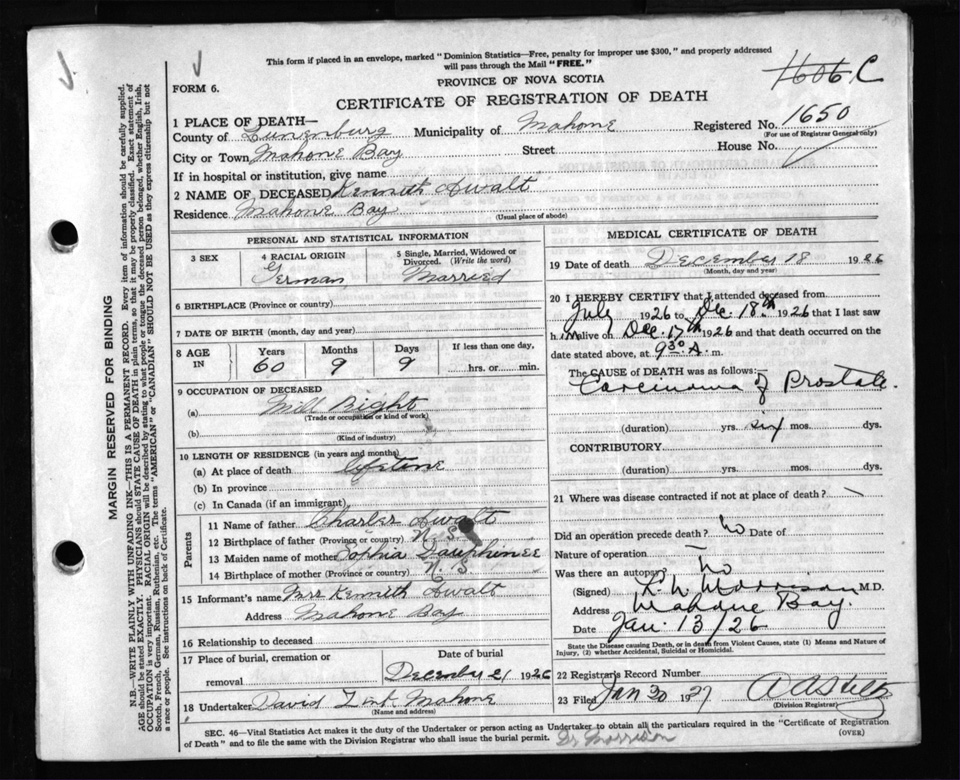 This form if placed in an envelope, marked "Dominion Statistics—Free, penalty for improper use $300," and properly addressed
will pass through the Mail "FREE."
1606 C
FORM 6.
PROVINCE OF NOVA SCOTIA
CERTIFICATE OF REGISTRATION OF DEATH
1 PLACE OF DEATH—
County of Lunenburg Municipality of Mahone Registered No. 1650
(For use of Registrar General only)
City or Town Mahone Bay Street House No.
If in hospital or institution, give name
2 NAME OF DECEASED Kenneth Awalt
Residence Mahone Bay
(Usual place of abode)
PERSONAL AND STATISTICAL INFORMATION
3 SEX
4 RACIAL ORIGIN
German
5 Single, Married, Widowed or Divorced. (Write the word)
Married
6 BIRTHPLACE (Province or country)
7 DATE OF BIRTH (month, day and year)
8 AGE IN
Years Months Days If less than one day,
60 9 9 hrs. or min.
9 OCCUPATION OF DECEASED
(a) Mill Right
(Trade or occupation or kind of work)
(b)
(Kind of industry)
10 LENGTH OF RESIDENCE (in years and months)
(a) At place of death lifetime
(b) In province
(c) In Canada (if an immigrant)
Parents
11 Name of father Charles Awalt
12 Birthplace of father (Province or country) N. S.
13 Maiden name of mother Sophia Dauphinee
14 Birthplace of mother (Province or country) N. S.
15 Informant's name Mrs Kenneth Awalt
Address Mahone Bay
16 Relationship to deceased
17 Place of burial, cremation or removal
Date of burial
December 21 1926
18 Undertaker David Zink Mahone
(Name and address)
MEDICAL CERTIFICATE OF DEATH
19 Date of death December 18 1926
(Month, day and year)
20 I HEREBY CERTIFY that I attended deceased from
July 1926 to Dec. 18th 1926 that I last saw
him alive on Dec. 17th 1926 and that death occurred on the
date stated above, at 9 30 A. m.
The CAUSE OF DEATH was as follows:
Carcinoma of Prostate.
(duration) yrs. six mos. dys.
CONTRIBUTORY
(duration) yrs. mos. dys.
21 Where was disease contracted if not at place of death?
Did an operation precede death? No Date of
Nature of operation —
Was there an autopsy No
(Signed) Morrison M.D.
Address Mahone Bay.
Date Jan. 13/26
State the Disease causing Death, or in death from Violent Causes, state (1) Means and Nature of
Injury, (2) whether Accidental, Suicidal or Homicidal.
22 Registrar's Record Number
23 Filed Jan 20 1927
(Division Registrar)
SEC. 46—Vital Statistics Act makes it the duty of the Undertaker or person acting as Undertaker to obtain all the particulars required in the "Certificate of Registration
of Death" and to file the same with the Division Registrar who shall issue the burial permit. Dr Morrison
(OVER)
MARGIN RESERVED FOR BINDING
N.B.—WRITE PLAINLY WITH UNFADING INK—THIS IS A PERMANENT RECORD. Every item of information should be carefully supplied.
AGE should be stated EXACTLY. PHYSICIANS should STATE CAUSE OF DEATH in plain terms, so that it may be properly classified. Exact statement of
OCCUPATION is very important. RACIAL ORIGIN will be described by stating to what people or tongue the deceased person belonged, whether English, Irish,
Scotch, French, German, Russian, Ruthenian, etc. The terms "AMERICAN" or "CANADIAN" SHOULD NOT BE USED as they express citizenship but not
a race or people. See instructions on back of Certificate.